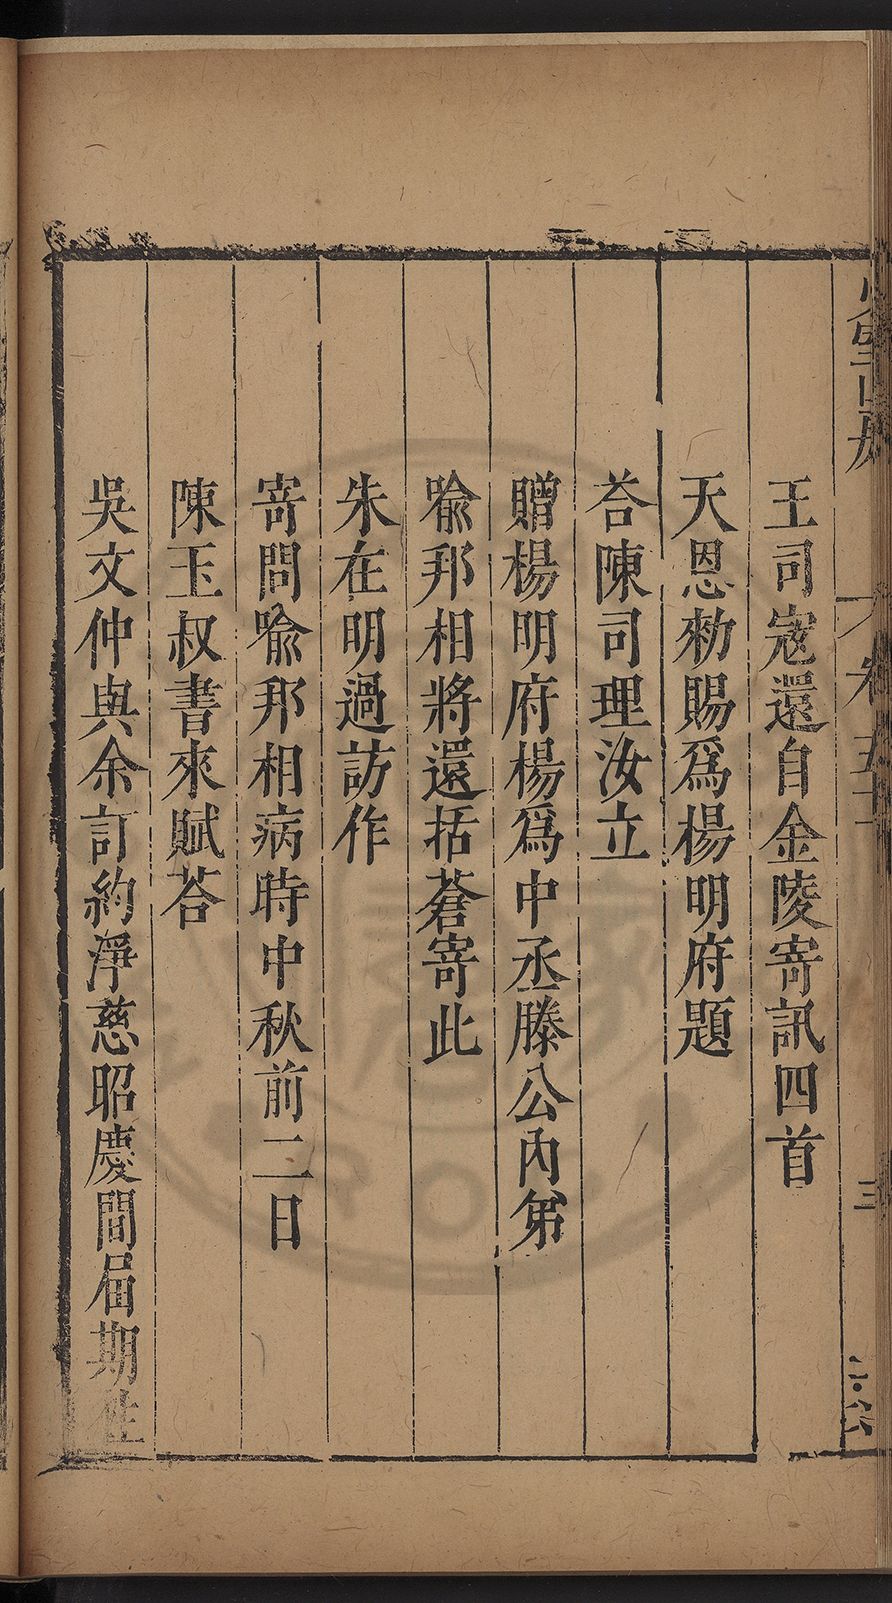 王司寇還自金陵寄訊四首
天恩勑賜爲楊明府題
荅陳司理汝立
贈楊明府楊爲中丞滕公內弟
喩邦相將還括蒼寄此
朱在明過訪作
寄問喩邦相病時中秋前二日
陳玉叔書來賦荅
吳文仲與余訂約淨慈昭慶間届期
卷五十
三